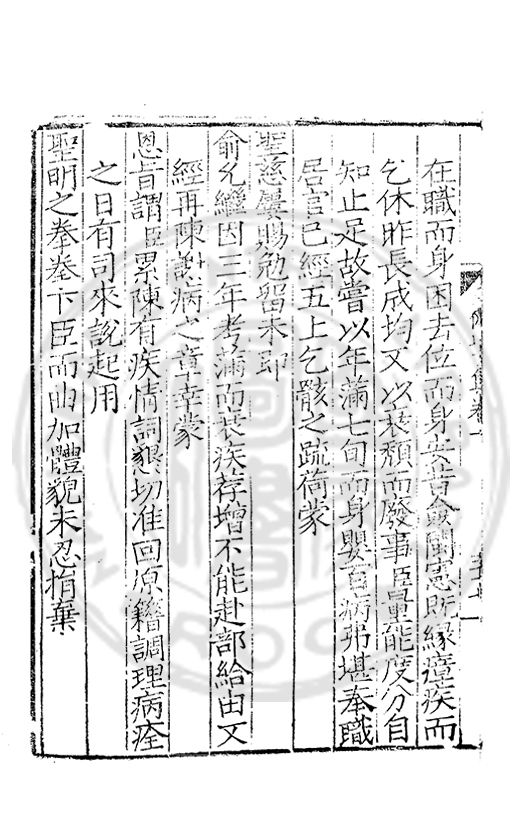 在職而身困去位而身安昔僉閩憲既緣瘴疾而
乞休昨長成均又以衰頹而廢事臣量能度分自
知止足故嘗以年滿七旬而身嬰百病弗堪奉職
居官已經五上乞骸之疏荷蒙
聖慈屢賜勉留未即
俞允繼因三年考滿而衰疾荐增不能赴部給由又
經再陳謝病之章幸蒙
恩旨謂臣累陳有疾情詞懇切准回原籍調理病痊
之日有司來說起用
聖明之眷眷卞臣而曲加體貌未忍捐棄